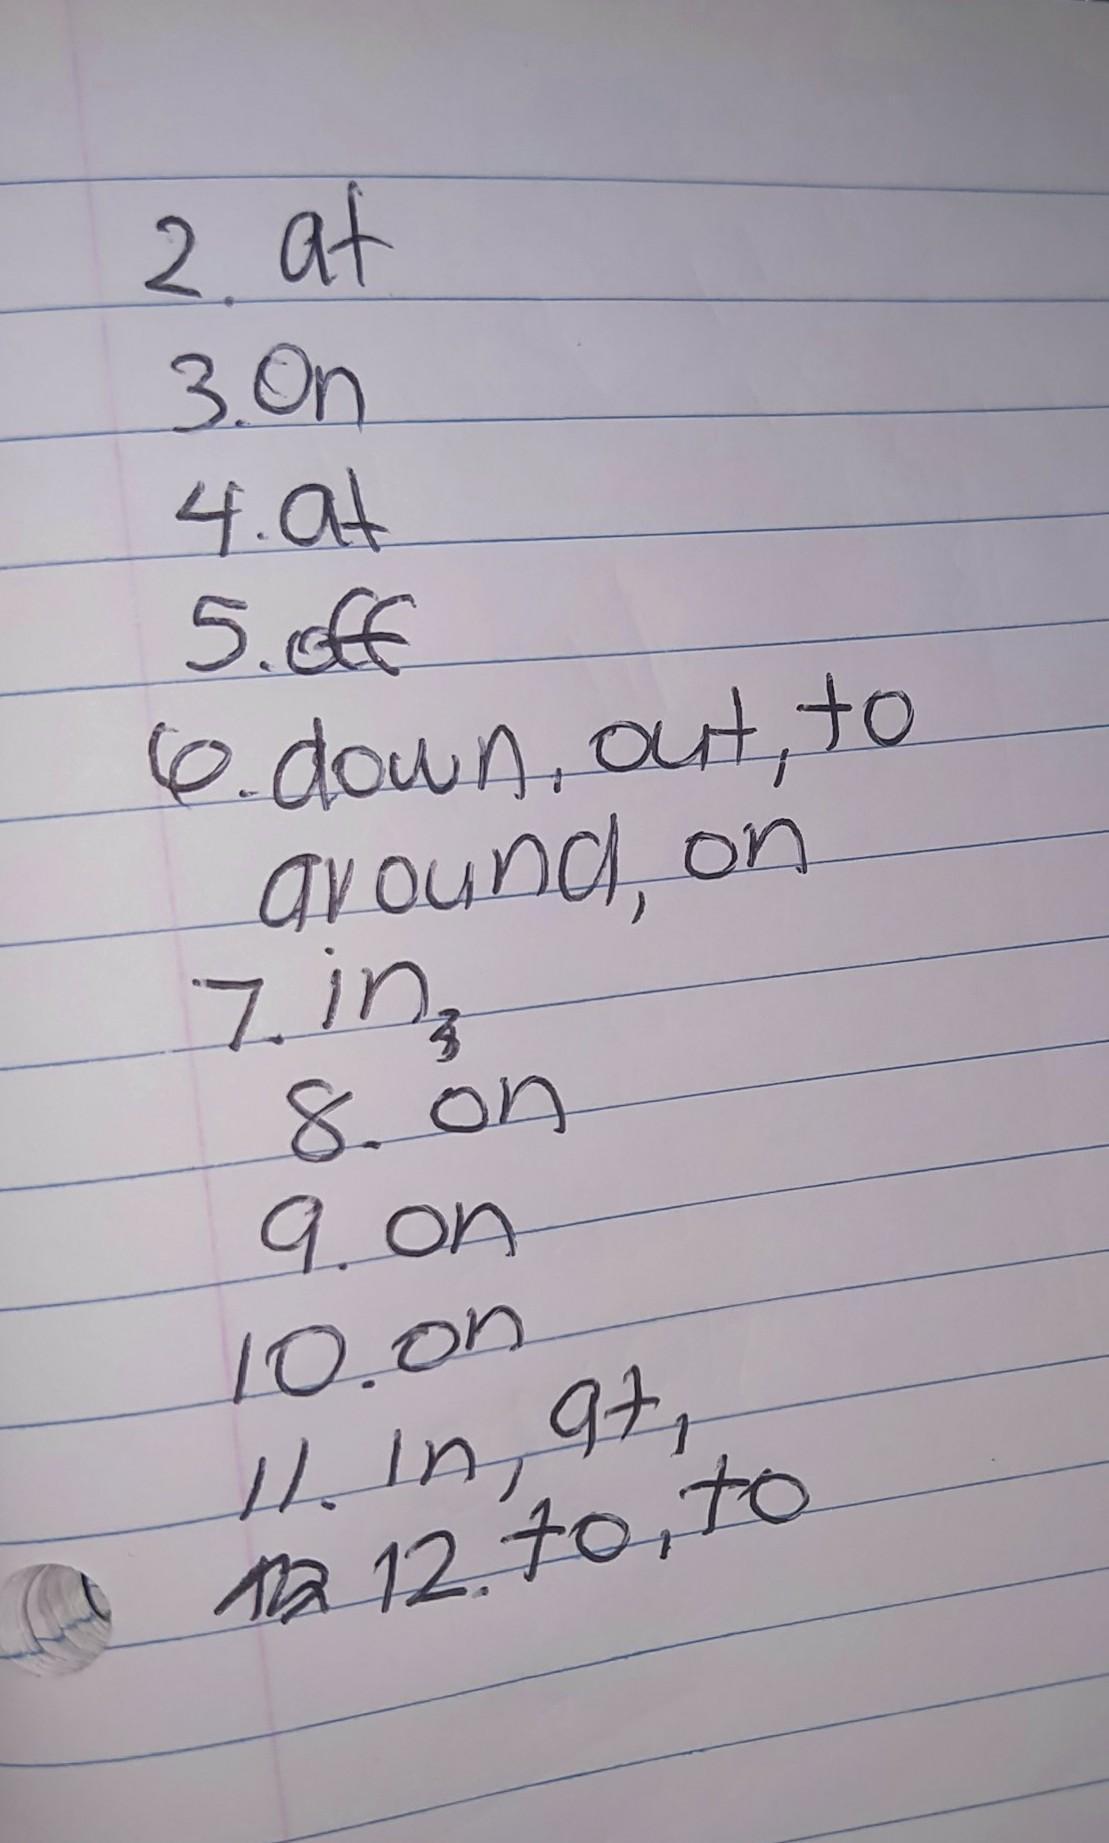 2. at
3. On
4. at
5. off
6. down, out, to
around, on
7. in,
8. on
9. on
10. on
11. in, at,
12. to, to